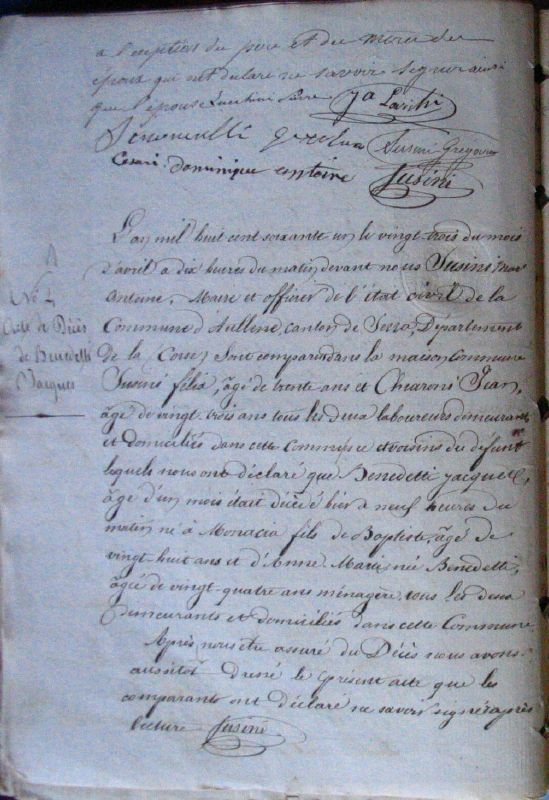 a l'eception du pere et de la mere des
epoux qui ont declaré ne savoir signer ainsi
que l'épouse Lucchini
Susini Gregoire
Cesari dominique antoine Susini
L'an mil huit cent soixante un le vingt-trois du mois
d'avril a dix heures du matin devant nous Susini
Antoine, Maire et officier de l'état civil de la
Commune d'Aullene, canton de Serra, Département
de la Corse, sont comparus dans la maison Commune
Susini félix, âgé de trente ans et Chiaroni Jean,
âgé de vingt trois ans tous les deux laboureurs demeurants
et domiciliés dans cette Commune et voisins du defunt
lesquels nous ont déclaré que Benedetti Jacques,
âgé d'un mois était décédé hier à neuf heures du
matin né à Monacia fils de Baptiste, âgé de
vingt-huit ans et d'Anne Marie née Benedetti,
âgée de vingt-quatre ans ménagère, tous les deux
demeurants et domiciliés dans cette Commune
Après nous être assuré du Décès nous avons
aussitôt dressé le présent acte que les
comparants ont déclaré ne savoir signer après
lecture Susini
Nº 4
Acte de Décès
de Benedetti
Jacques